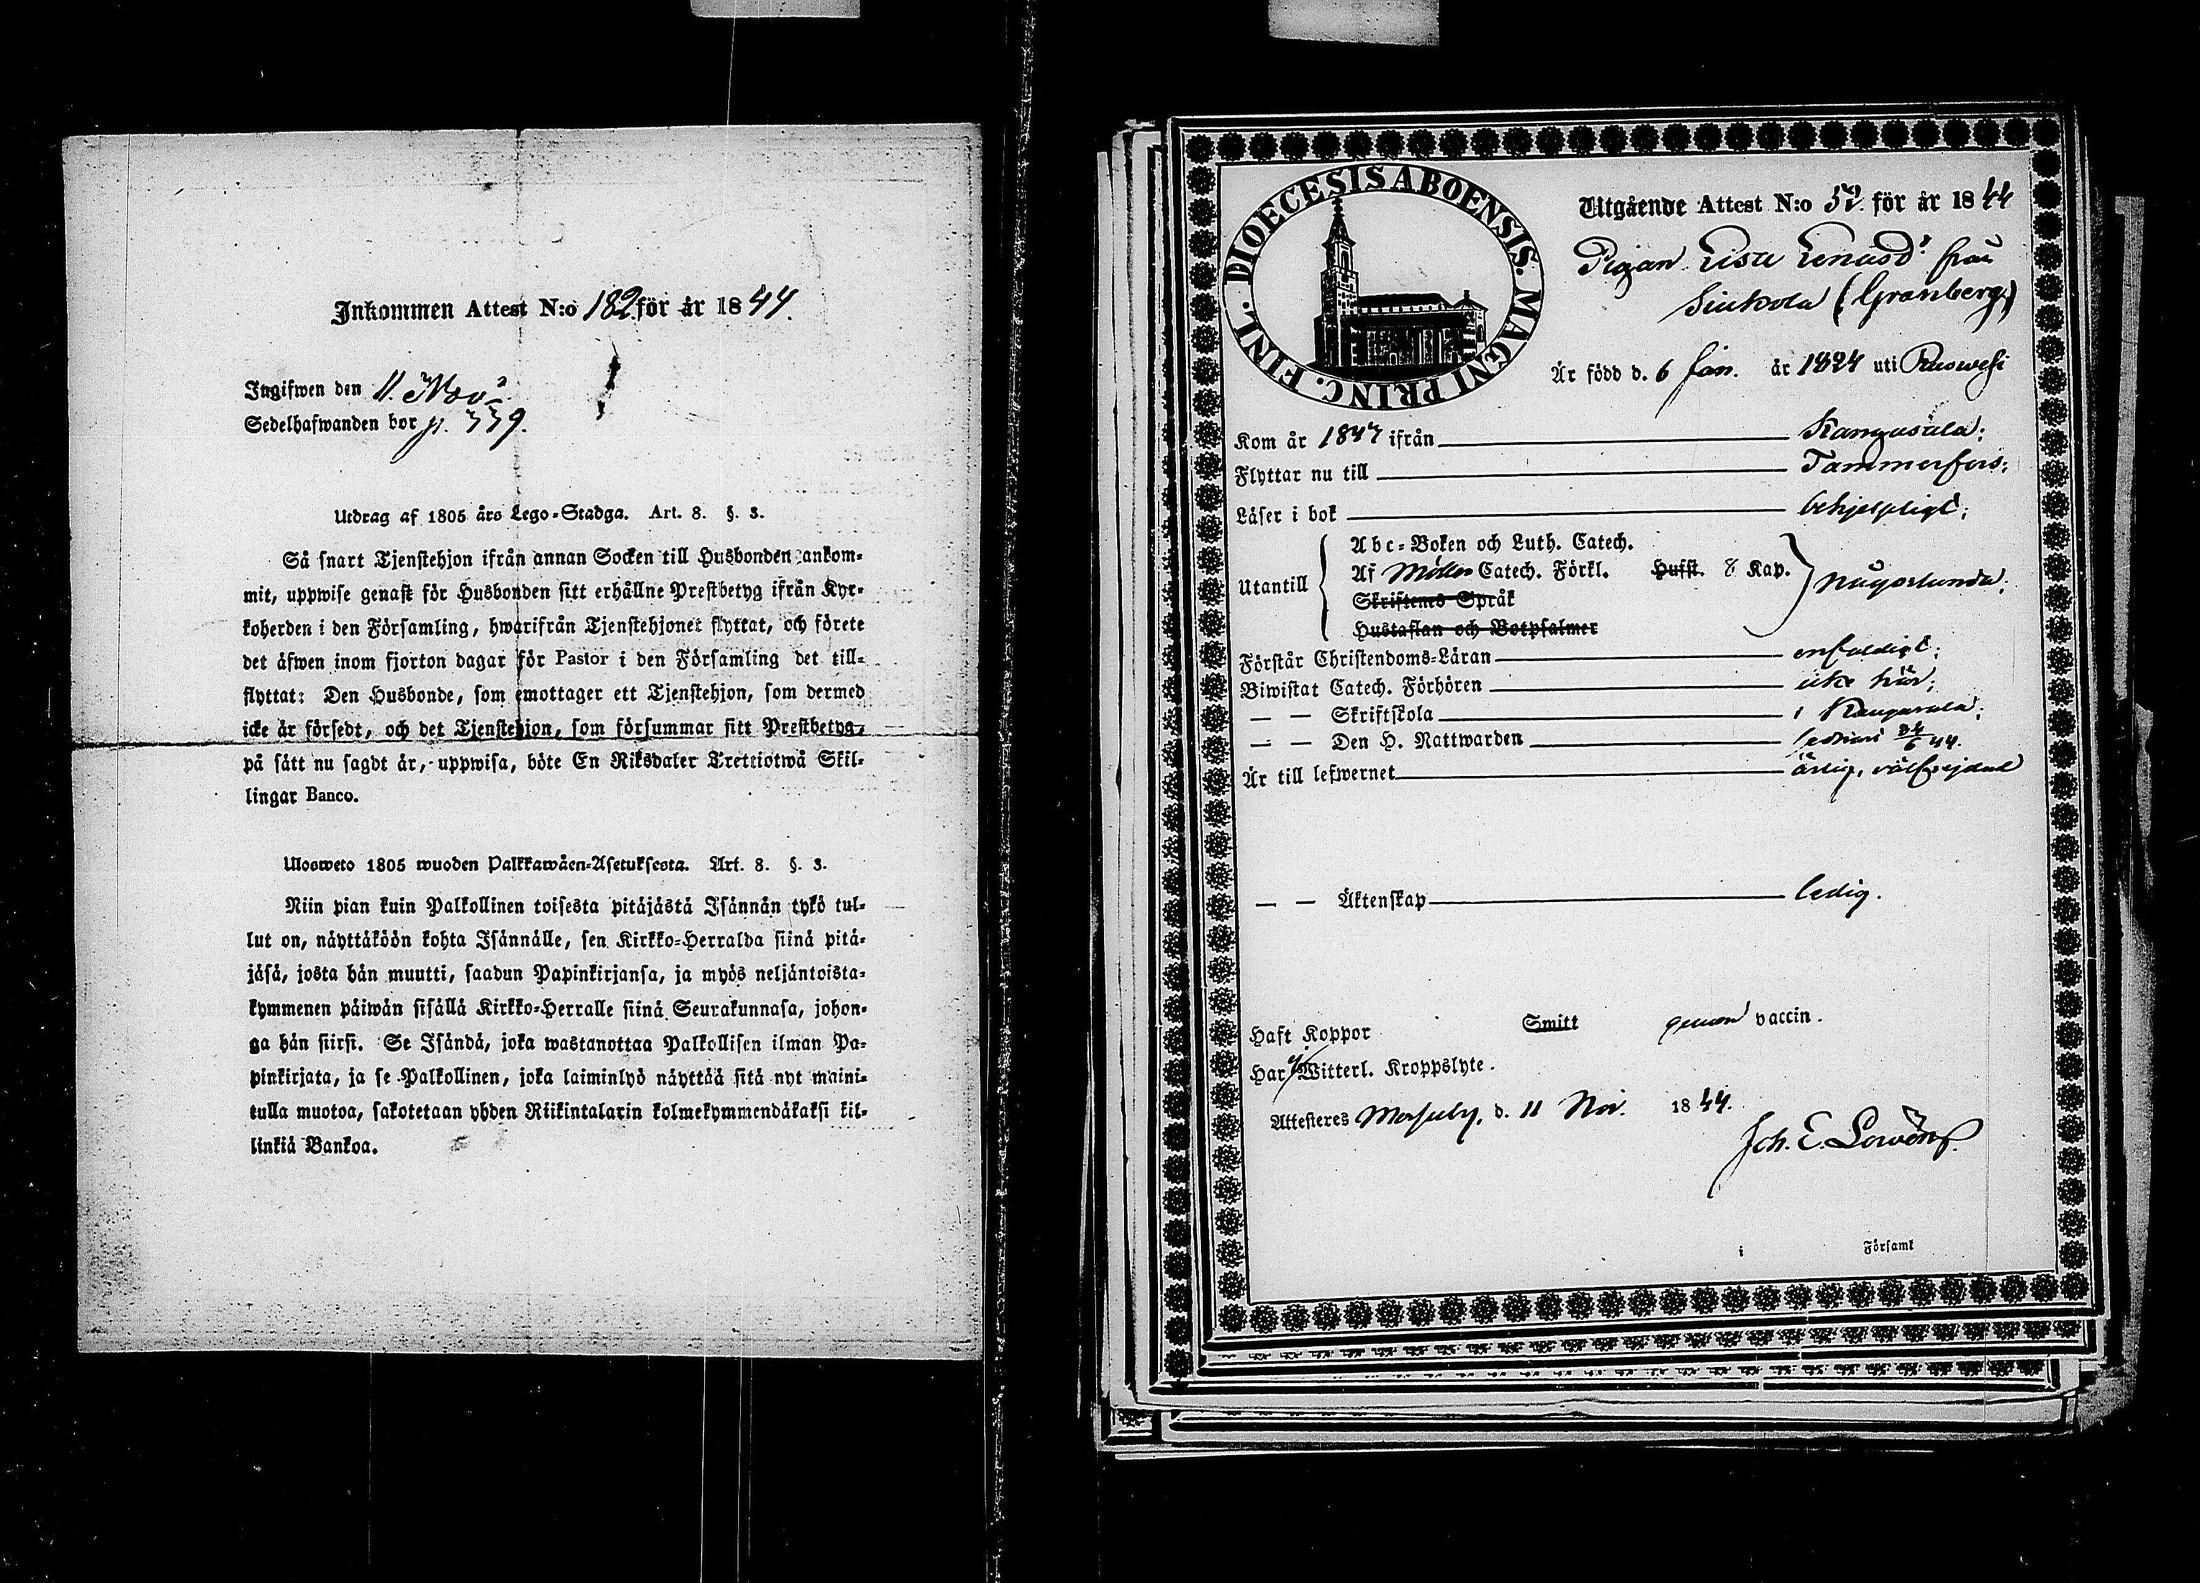 Inkommen Attest N:o 182 för år 1844.
Ingifwen den 11. Nov.
Sedelhafwanden bor p. 339.
Utdrag af 1805 års Lego-Stadga. Art. 8. §. 3.
Så snart Tjenstehjon ifrån annan Socken till Husbonden ankom-
mit, uppwise genast för Husbonden sitt erhållne Prestbetyg ifrån Kyr-
koherden i den Församling, hwarifrån Tjenstehjonet flyttat, och förete
det äfwen inom fjorton dagar för Pastor i den Församling det till-
flyttat: Den Husbonde, som emottager ett Tjenstehjon, som dermed
icke är försedt, och det Tjenstehjon, som försummar sitt Prestbetyg,
på sätt nu sagdt är, uppwisa, böte En Riksdaler Trettiotwå Skil-
lingar Banco.
Ulosweto 1805 wuoden Palkkawäen-Asetuksesta. Art. 8. §. 3.
Niin pian kuin Palkollinen toisesta pitäjästä Isännän tykö tul-
lut on, näyttäköön kohta Isännälle, sen Kirkko-Herralda siinä pitä-
jäsä, josta hän muutti, saadun Papinkirjansa, ja myös neljäntoista-
kymmenen päiwän sisällä Kirkko-Herralle siinä Seurakunnasa, johon-
ga hän siirsi. Se Isändä, joka wastanottaa Palkollisen ilman Pa-
pinkirjata, ja se Palkollinen, joka laiminlyö näyttää sitä nyt maini-
tulla muotoa, sakotetaan yhden Riikintalarin kolmekymmendäkaksi kil-
linkiä Bankoa.
DIOECESIS ABOENSIS. MAGNI PRINC. FINL.
Utgående Attest N:o 52. för år 1844
Pigan Lisa Enusd:r från
Siukola (Granberg)
Är född d. 6 Jan. år 1824 uti Ruowesi
Kom år 1843 ifrån Kangasala;
Flyttar nu till Tammerfors;
Läser i bok behjelpligt;
Abc-Boken och Luth. Catech.
Utantill Af Möllers Catech. Förkl. Husst. 8 Kap. någorlunda;
Skriftenes Språk
Hustaflan och Botpsalmer
Förstår Christendoms-Läran enfaldigt;
Biwistat Catech. Förhören icke här;
— — Skriftskola i Kangasala;
— — Den H. Nattwarden 44.
Är till lefwernet ärlig, välfrejdad
— — Äktenskap ledig.
Haft Koppor Smitt genom vaccin.
Har Witterl. Kroppslyte.
Attesteres Messuby, d. 11 Nov. 1844.
Joh. E.
i Församl